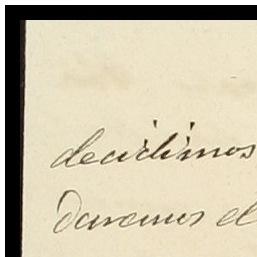 decidimos
daremos el